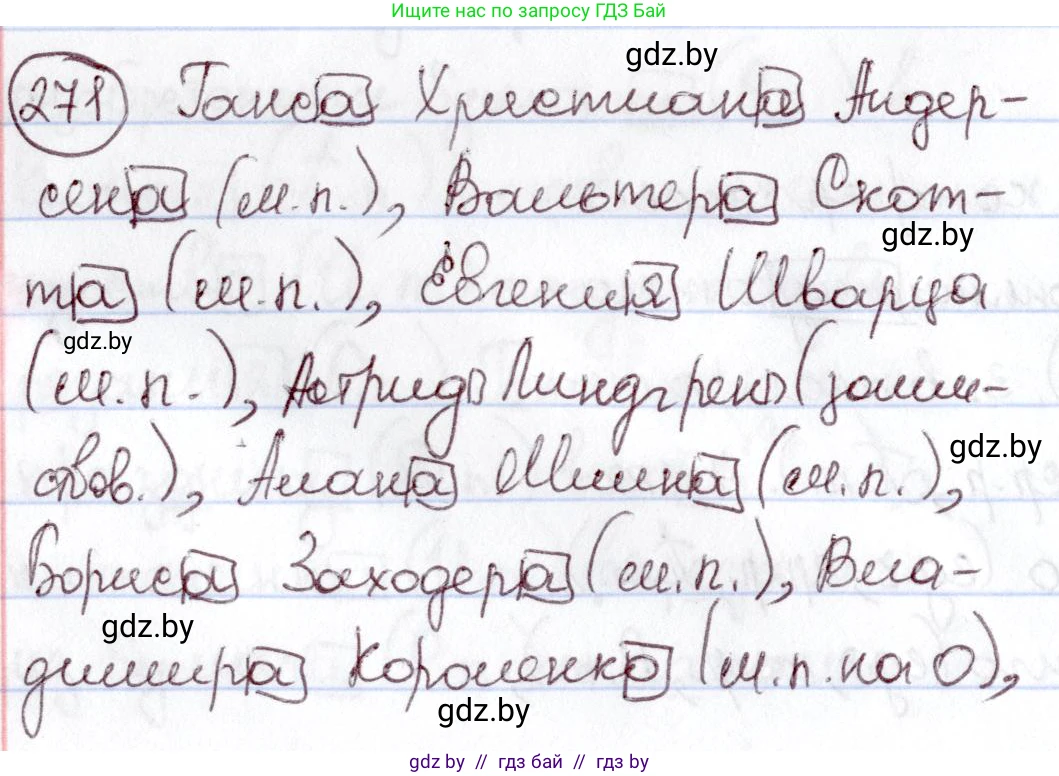 Ищите нас по запросу ГДЗ Бай
gdz.by
271 Ганса Христиана Андер-
сена (м.п.), Вальтера Скот-
gdz.by
та (м.п.), Евгения Шварца
gdz.by
(м.п.), Астрид Линдгрен (заим-
ствов.), Алана Милна (м.п.),
gdz.by
Бориса Заходера (м.п.), Вла-
gdz.by
димира Короленко (м.п. на О),
gdz.by
gdz.by // гдз бай // гдз by